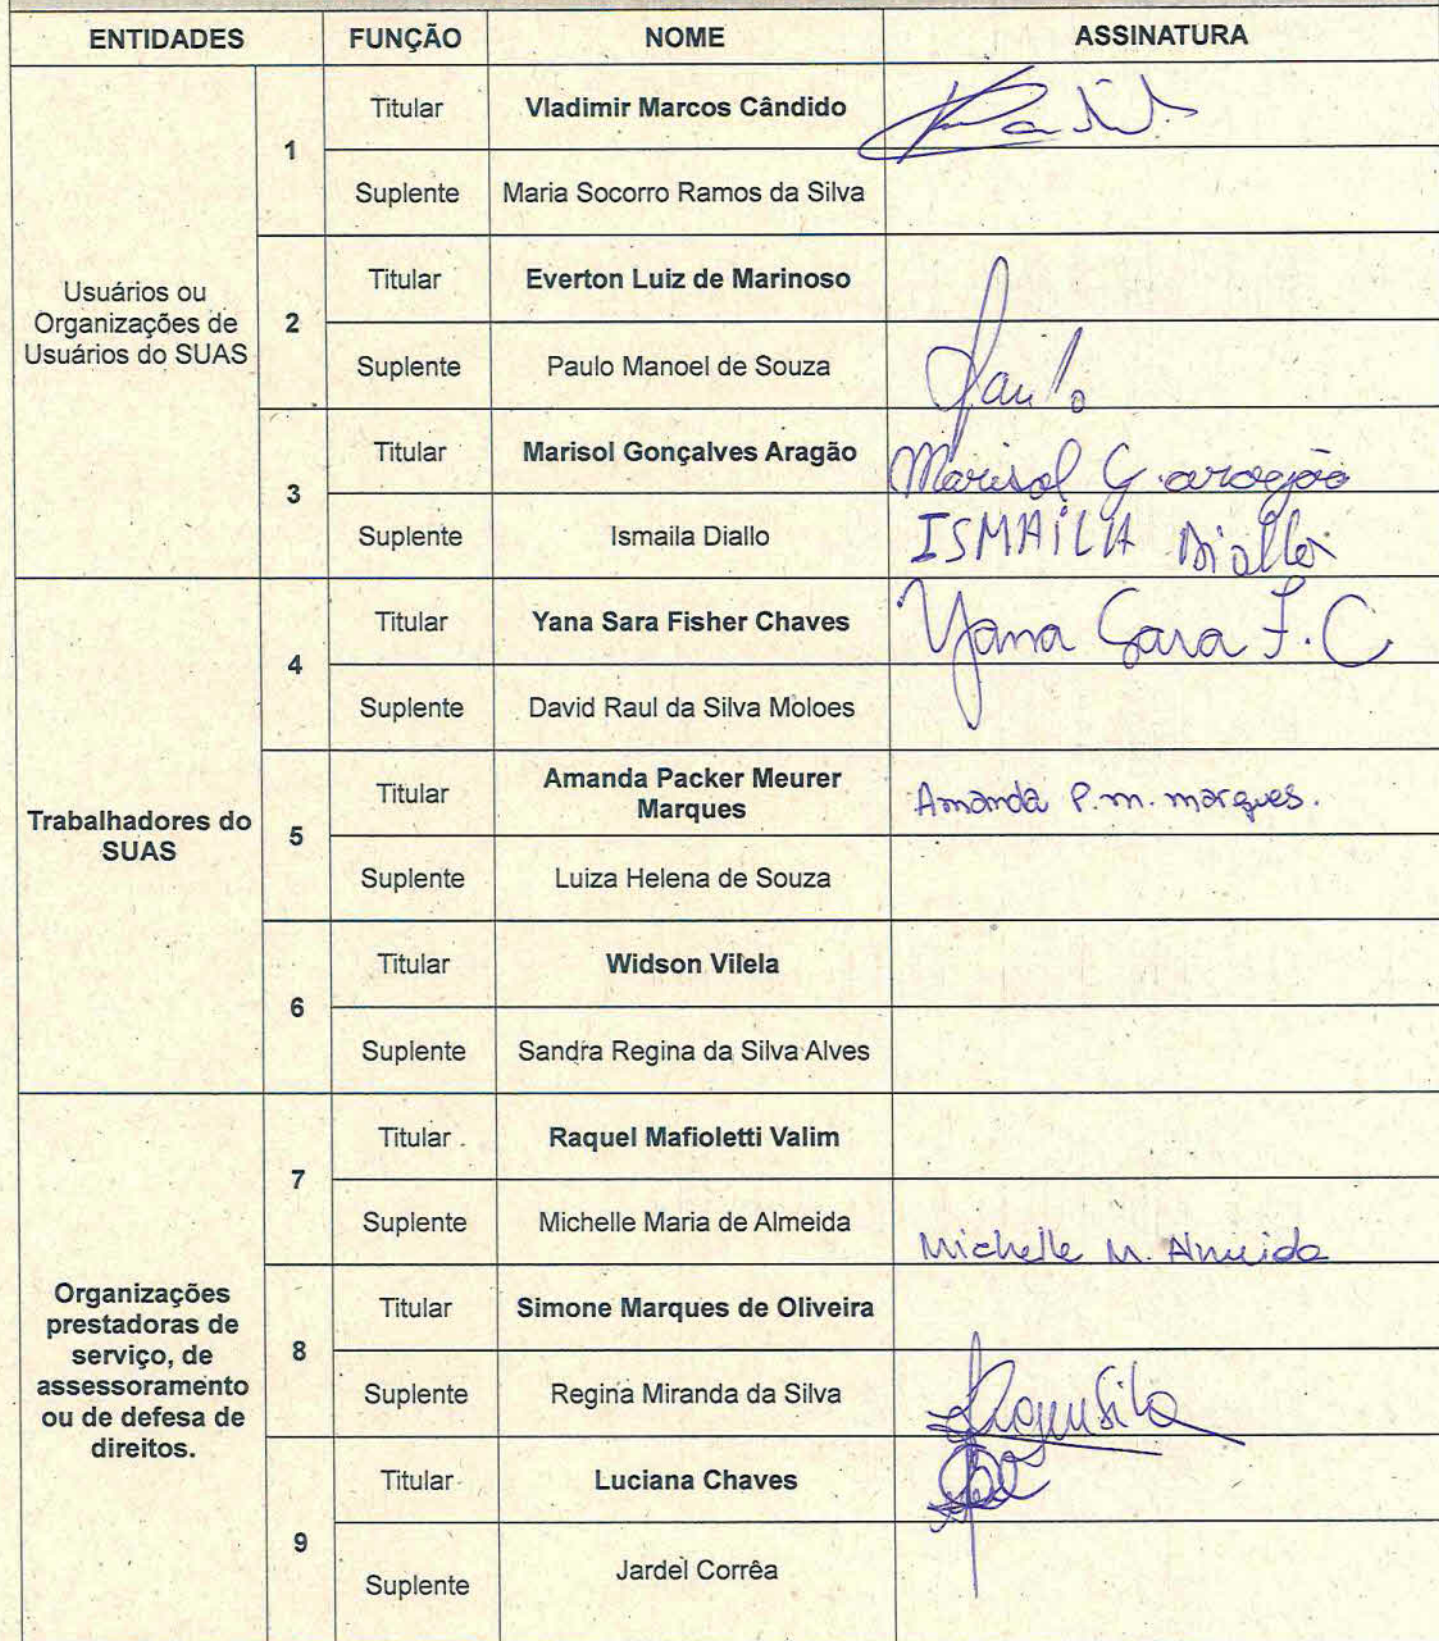 ENTIDADES FUNÇÃO NOME ASSINATURA
Usuários ou
Organizações de
Usuários do SUAS
1
Titular Vladimir Marcos Cândido
Suplente Maria Socorro Ramos da Silva
2
Titular Everton Luiz de Marinoso
Suplente Paulo Manoel de Souza Paulo
3
Titular Marisol Gonçalves Aragão Marisol G. aragão
Suplente Ismaila Diallo ISMAiLA Diallo
Trabalhadores do
SUAS
4
Titular Yana Sara Fisher Chaves Yana Sara F. C
Suplente David Raul da Silva Moloes
5
Titular Amanda Packer Meurer
Marques Amanda P. m. marques.
Suplente Luiza Helena de Souza
6
Titular Widson Vilela
Suplente Sandra Regina da Silva Alves
Organizações
prestadoras de
serviço, de
assessoramento
ou de defesa de
direitos.
7
Titular Raquel Mafioletti Valim
Suplente Michelle Maria de Almeida Michelle M. Almeida
8
Titular Simone Marques de Oliveira
Suplente Regina Miranda da Silva
9
Titular Luciana Chaves
Suplente Jardel Corrêa